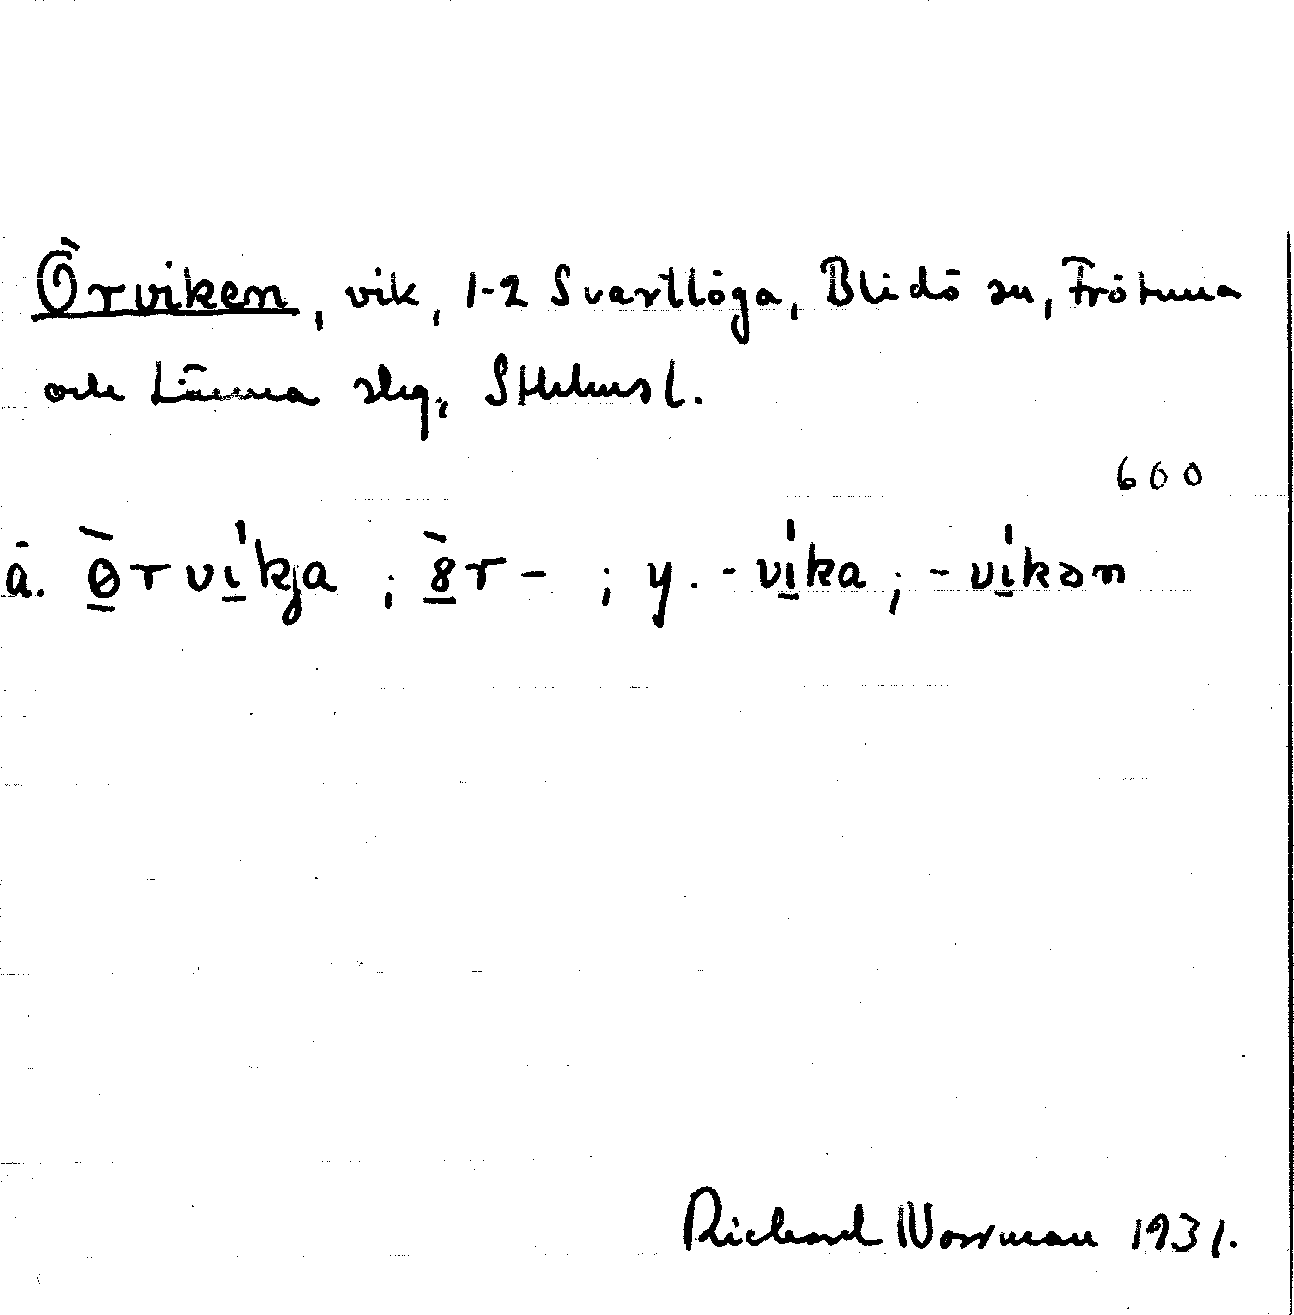 Örviken, vik, 1-2 Svartlöga, Blidö sn, Frötuna
och Länna slg, Sthlms l.
600
ä. ø̠̀rví̠kja ; 8̠̀r- ; y. -ví̠ka ; -ví̠kən
Richard Norrman 1931.